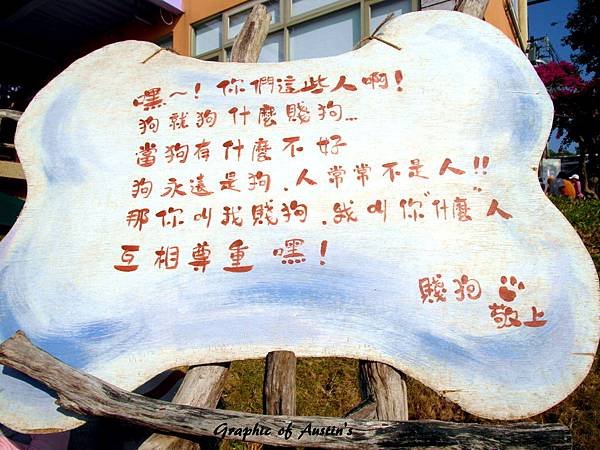 嘿～！你們這些人啊！
狗就狗什麼賤狗...
當狗有什麼不好
狗永遠是狗．人常常不是人!!
那你叫我賤狗．我叫你"什麼"人
互相尊重嘿！
賤狗
敬上
Graphic of Austin's